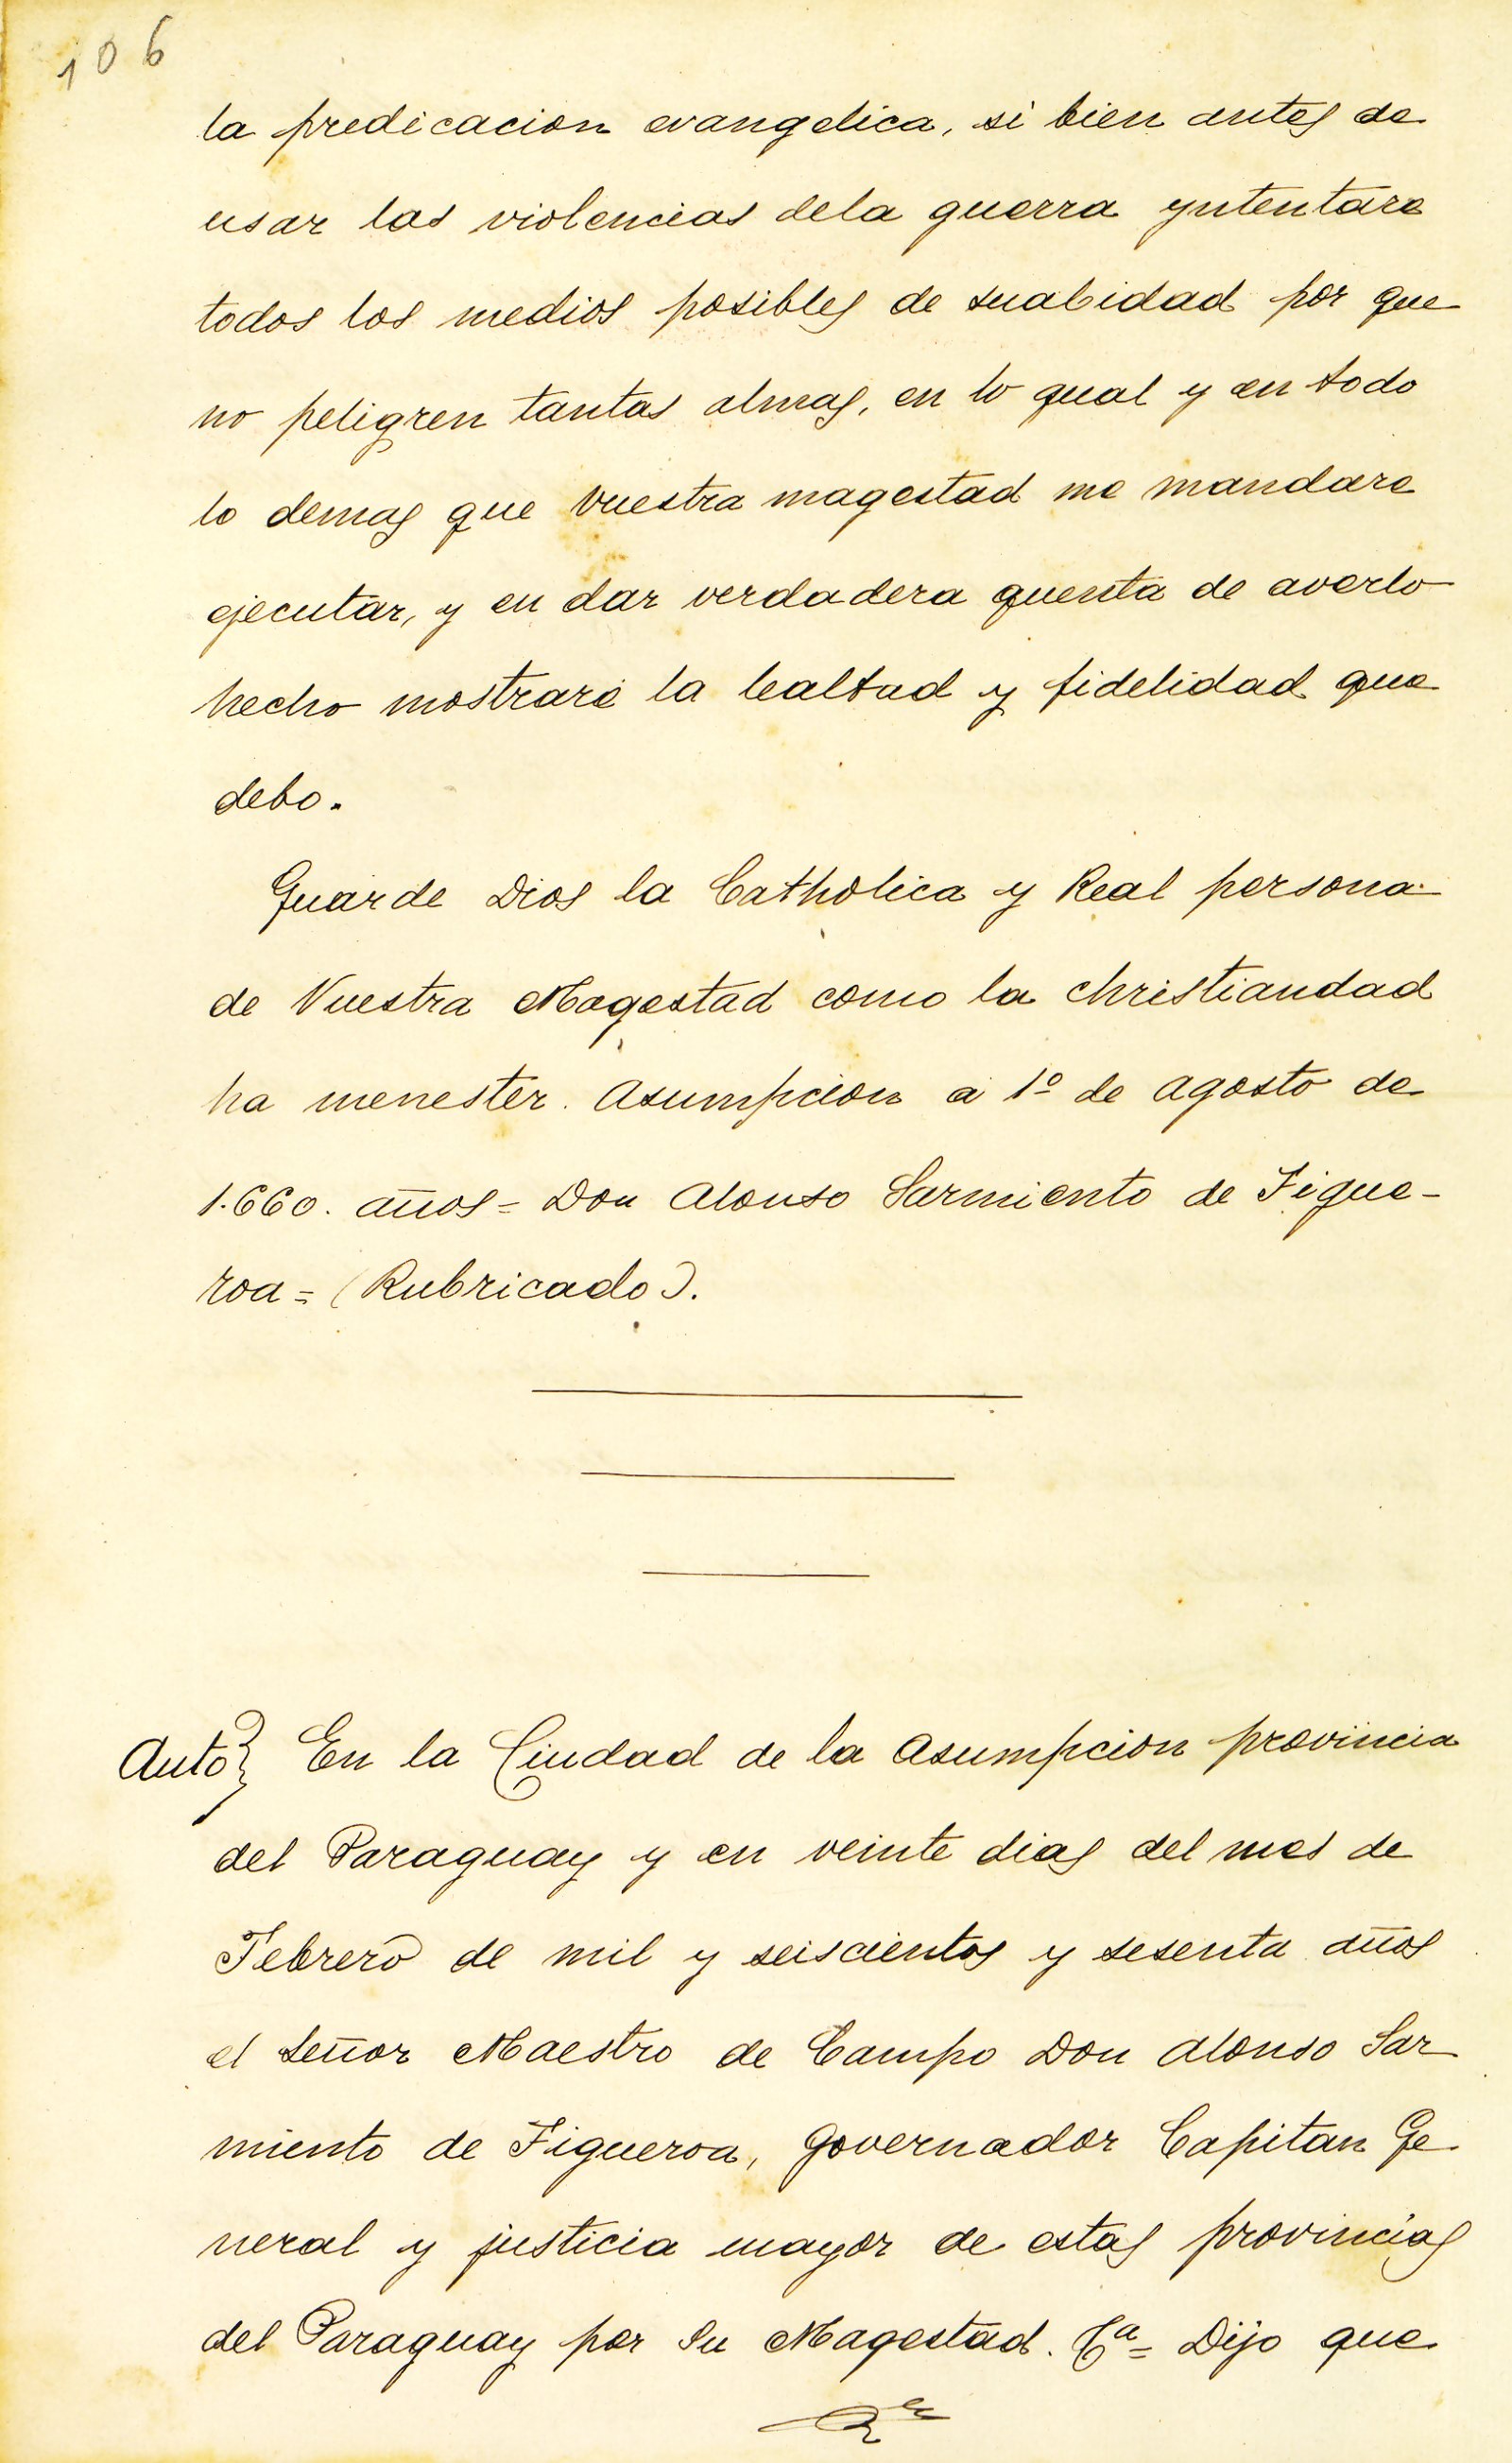 106
la predicacion evangelica, si bien antes de
usar las violencias dela guerra yntentare
todos los medios posibles de suabidad por que
no peligren tantas almas, en lo qual y en todo
lo demas que Vuestra magestad me mandare
ejecutar, y en dar verdadera quenta de averlo
hecho mostraré la lealtad y fidelidad que
debo.
Guarde Dios la Catholica y Real persona
de Vuestra Magestad como la christiandad
ha menester. Asumpcion a 1º de agosto de
1.660. años = Don Alonso Sarmiento de Figue-
roa = (Rubricado).
Auto} En la Ciudad de la Asumpcion provincia
del Paraguay y en veinte dias del mes de
Febrero de mil y seiscientos y sesenta años
el Señor Maestro de Campo Don Alonso Sar
miento de Figueroa, Governador Capitan Ge
neral y justicia mayor de estas provincias
del Paraguay por Su Magestad. Cª = Dijo que